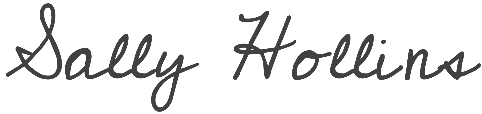 Sally Hollins